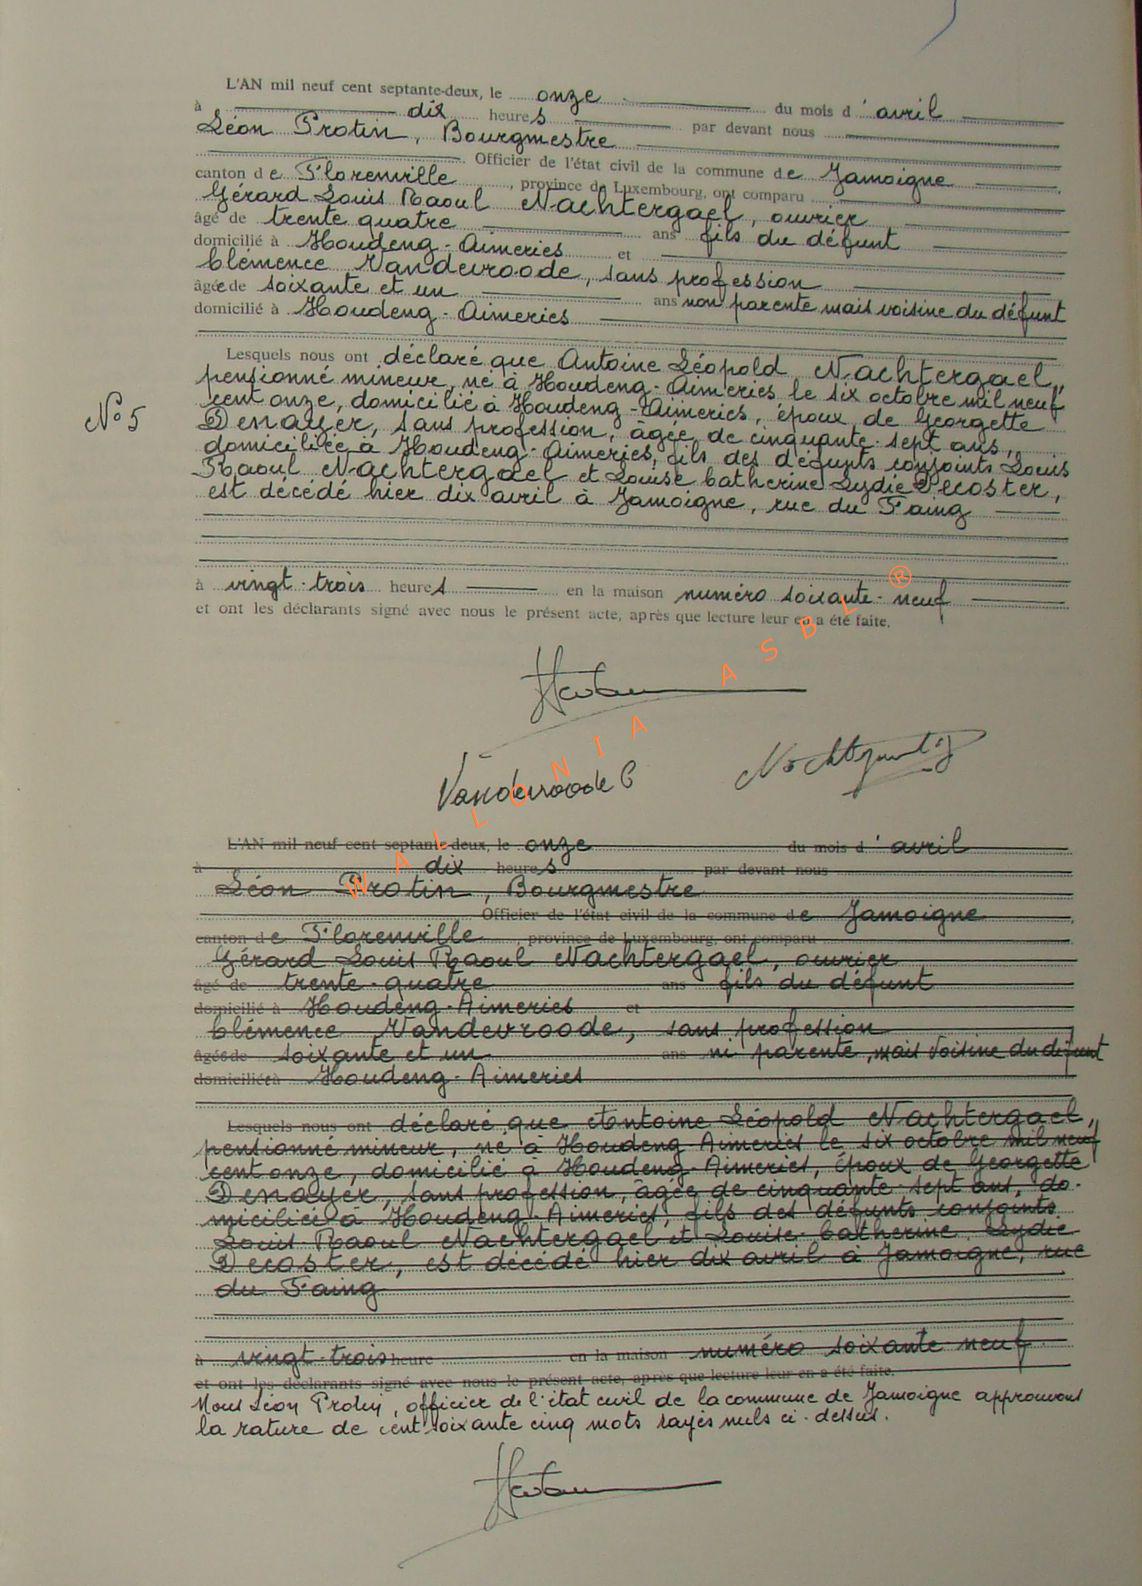 L'AN mil neuf cent septante-deux, le onze du mois d'avril
à dix heures par devant nous
Léon Protin, Bourgmestre
Officier de l'état civil de la commune de Jamoigne
canton de Florenville, province de Luxembourg, ont comparu
Gérard Louis Raoul Nachtergael, ouvrier
âgé de trente quatre ans fils du défunt
domicilié à Houdeng-Aimeries et
Clémence Vandevroode, sans profession
âgée de soixante et un ans non parente mais voisine du défunt
domicilié à Houdeng-Aimeries
Lesquels nous ont déclaré que Antoine Léopold Nachtergael,
pensionné mineur, né à Houdeng-Aimeries le six octobre mil neuf
N° 5
cent onze, domicilié à Houdeng-Aimeries, époux de Georgette
Denayer, sans profession, âgée de cinquante-sept ans,
domiciliée à Houdeng-Aimeries, fils des défunts conjoints Louis
Raoul Nachtergael et Louise Catherine Lydie Decoster,
est décédé hier dix avril à Jamoigne, rue du Faing
à vingt-trois heures en la maison numéro soixante-neuf
et ont les déclarants signé avec nous le présent acte, après que lecture leur en a été faite.
WALLONIA ASBL ®
Vandevroode C
L'AN mil neuf cent septante-deux, le onze du mois d'avril
à dix heures par devant nous
Léon Protin, Bourgmestre
Officier de l'état civil de la commune de Jamoigne
canton de Florenville, province de Luxembourg, ont comparu
Gérard Louis Raoul Nachtergael, ouvrier
âgé de trente-quatre ans fils du défunt
domicilié à Houdeng-Aimeries et
Clémence Vandevroode, sans profession
âgée de soixante et un ans ni parente, mais voisine du défunt
domiciliée à Houdeng-Aimeries
Lesquels nous ont déclaré que Antoine Léopold Nachtergael,
pensionné mineur, né à Houdeng-Aimeries le six octobre mil neuf
cent onze, domicilié à Houdeng-Aimeries, époux de Georgette
Denayer, sans profession, âgée de cinquante-sept ans, do-
miciliée à Houdeng-Aimeries, fils des défunts conjoints
Louis Raoul Nachtergael et Louise Catherine Lydie
Decoster, est décédé hier dix avril à Jamoigne, rue
du Faing
à vingt-trois heure en la maison numéro soixante-neuf
et ont les déclarants signé avec nous le présent acte, après que lecture leur en a été faite.
Nous Léon Protin, officier de l'état civil de la commune de Jamoigne approuvons
la rature de cent soixante cinq mots rayés nuls ci-dessus.